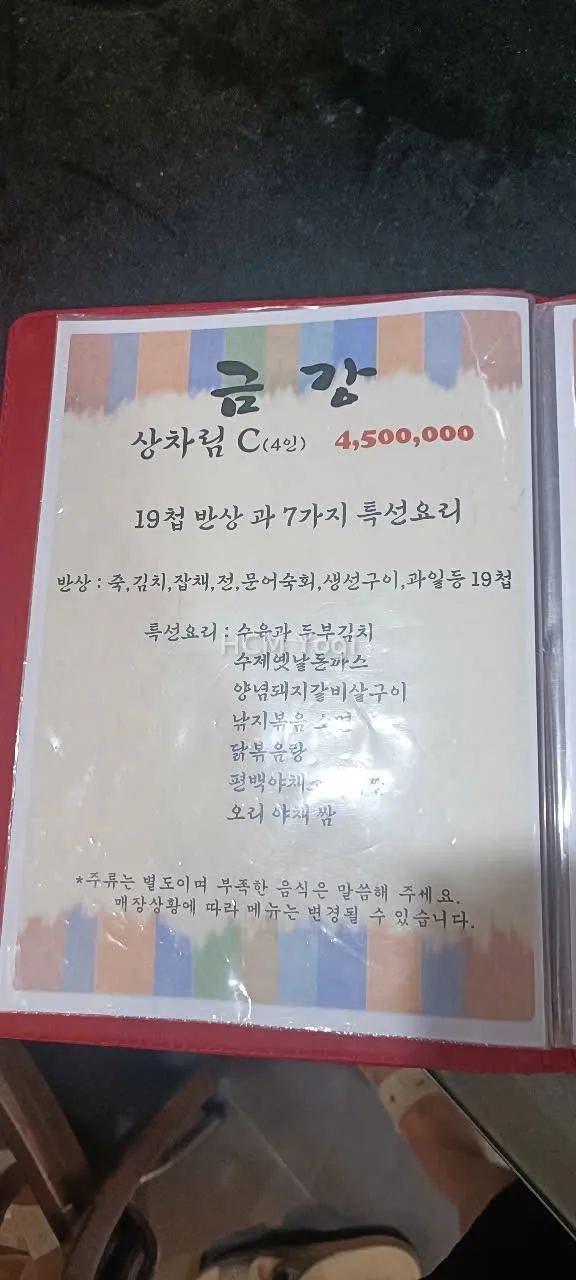 금 강
상차림 C(4인) 4,500,000
19첩 반상 과 7가지 특선요리
반상 : 죽,김치,잡채,전,문어숙회,생선구이,과일등 19첩
특선요리 : 수육과 두부김치
HCM Yogi
수제옛날돈까스
양념돼지갈비살구이
낚지볶음
닭볶음탕
편백야채
오리 야채 쌈
*주류는 별도이며 부족한 음식은 말씀해 주세요.
매장상황에 따라 메뉴는 변경될 수 있습니다.